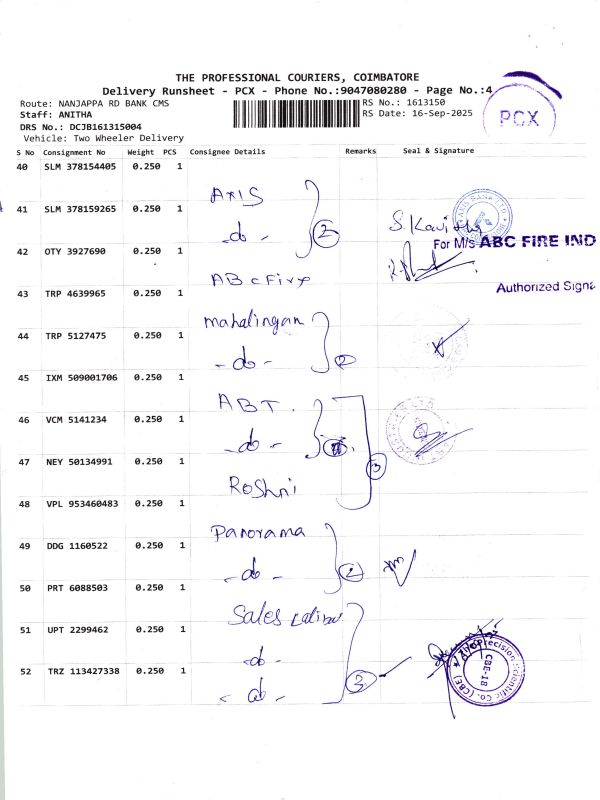 THE PROFESSIONAL COURIERS, COIMBATORE
Delivery Runsheet - PCX - Phone No.:9047080280 - Page No.:4
Route: NANJAPPA RD BANK CMS
RS No.: 1613150
Staff: ANITHA
RS Date: 16-Sep-2025
DRS No.: DCJB161315004
Vehicle: Two Wheeler Delivery
PCX
S No Consignment No Weight PCS Consignee Details Remarks Seal & Signature
40 SLM 378154405 0.250 1
AXIS
41 SLM 378159265 0.250 1
-do- 2
S. Kavitha
For M/s ABC FIRE IND
42 OTY 3927690 0.250 1
ABC Fire
43 TRP 4639965 0.250 1
Authorized Signa
mahalingan
44 TRP 5127475 0.250 1
-do- 2
45 IXM 509001706 0.250 1
ABT.
46 VCM 5141234 0.250 1
-do-
47 NEY 50134991 0.250 1
3
Roshni
48 VPL 953460483 0.250 1
Panorama
49 DDG 1160522 0.250 1
-do- 2
50 PRT 6088503 0.250 1
Sales
51 UPT 2299462 0.250 1
-do-
52 TRZ 113427338 0.250 1
-do- 3
Precision Scientific Co. (CBE)
CBE-18